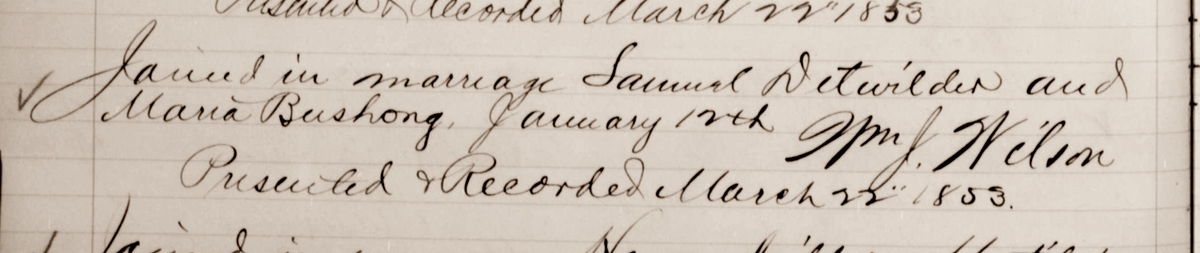 Presented & Recorded March 22" 1853
Joined in marriage Samuel Detwilder and
Maria Bushong. January 12th Wm J. Wilson
Presented & Recorded March 22" 1853.
Joined in